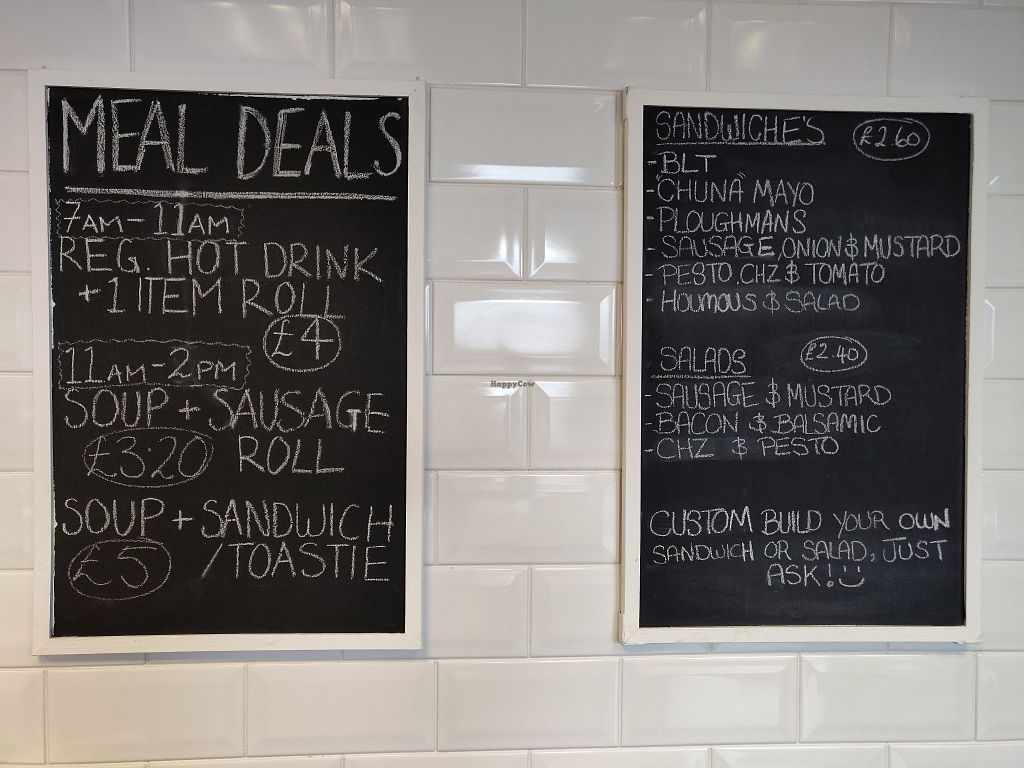 MEAL DEALS
7AM-11AM
REG. HOT DRINK
+ 1 ITEM ROLL
£4
11AM-2PM
SOUP + SAUSAGE
£3.20 ROLL
SOUP + SANDWICH
£5 /TOASTIE
SANDWICHE'S £2.60
- BLT
- "CHUNA" MAYO
- PLOUGHMANS
- SAUSAGE, ONION & MUSTARD
- PESTO, CHZ & TOMATO
- HOUMOUS & SALAD
SALADS £2.40
- SAUSAGE & MUSTARD
- BACON & BALSAMIC
- CHZ & PESTO
CUSTOM BUILD YOUR OWN
SANDWICH OR SALAD, JUST
ASK! :)
HappyCow